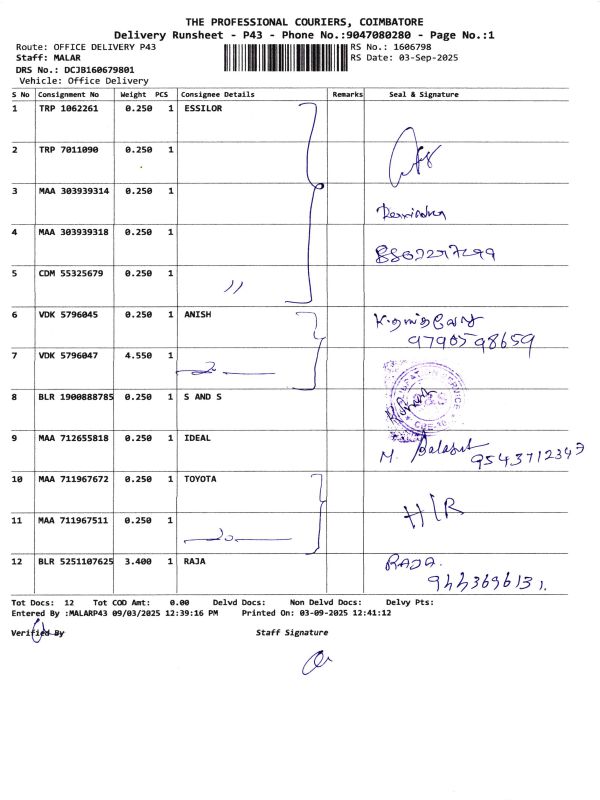 THE PROFESSIONAL COURIERS, COIMBATORE
Delivery Runsheet - P43 - Phone No.:9047080280 - Page No.:1
Route: OFFICE DELIVERY P43
RS No.: 1606798
Staff: MALAR
RS Date: 03-Sep-2025
DRS No.: DCJB160679801
Vehicle: Office Delivery
S No Consignment No Weight PCS Consignee Details Remarks Seal & Signature
1 TRP 1062261 0.250 1 ESSILOR
2 TRP 7011090 0.250 1
3 MAA 303939314 0.250 1
4 MAA 303939318 0.250 1
5 CDM 55325679 0.250 1 "
6 VDK 5796045 0.250 1 ANISH
9790598659
7 VDK 5796047 4.550 1
8 BLR 1900888785 0.250 1 S AND S
9 MAA 712655818 0.250 1 IDEAL M.
9543712343
10 MAA 711967672 0.250 1 TOYOTA
HIR
11 MAA 711967511 0.250 1
12 BLR 5251107625 3.400 1 RAJA RAJA.
9443696131.
Tot Docs: 12 Tot COD Amt: 0.00 Delvd Docs: Non Delvd Docs: Delvy Pts:
Entered By :MALARP43 09/03/2025 12:39:16 PM Printed On: 03-09-2025 12:41:12
Verified By Staff Signature